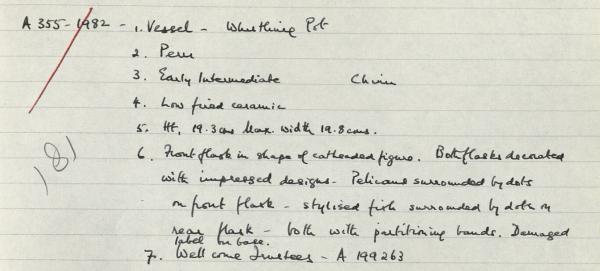 A 355-1982 - 1. Vessel - Whistling Pot
2. Peru
3. Early Intermediate Chimu
4. Low fired ceramic
5. Ht, 19.3cms Max. width 19.8cms.
6. Front flask in shape of catheaded figure. Both flasks decorated
with impressed designs - Pelicans surrounded by dots
on front flask - stylised fish surrounded by dots on
rear flask - both with partitioning bands. Damaged
label on base.
7. Wellcome Trustees - A 199263
181